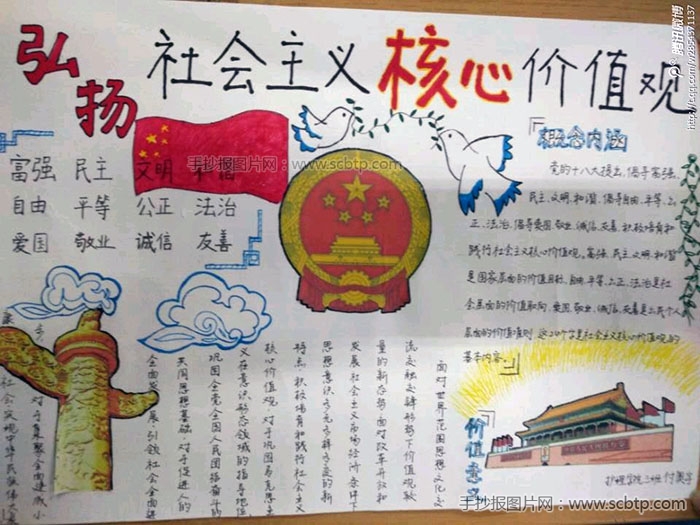 弘扬
社会主义核心价值观
富强 民主 文明
自由 平等 公正 法治
爱国 敬业 诚信 友善
手抄报图片网：www.scbtp.com
概念内涵
党的十八大提出，倡导富强、
民主、文明、和谐，倡导自由、平等、公
正、法治，倡导爱国、敬业、诚信、友善，积极培育和
践行社会主义核心价值观。富强、民主、文明、和谐
是国家层面的价值目标，自由、平等、公正、法治是社
会层面的价值取向，爱国、敬业、诚信、友善是公民个人
层面的价值准则，这24个字是社会主义核心价值观的
基本内容。
价值意义
面对世界范围思想文化交
流交融交锋形势下价值观较
量的新态势，面对改革开放和
发展社会主义市场经济条件下
思想意识多元多样多变的新
特点，积极培育和践行社会主义
核心价值观，对于巩固马克思主
义在意识形态领域的指导地位
巩固全党全国人民团结奋斗的
共同思想基础，对于促进人的
全面发展、引领社会全面进
对于集聚全面建成小
社会、实现中华民族伟大复
护理学院三班
手抄报图片网：www.scbtp.com
腾讯微博